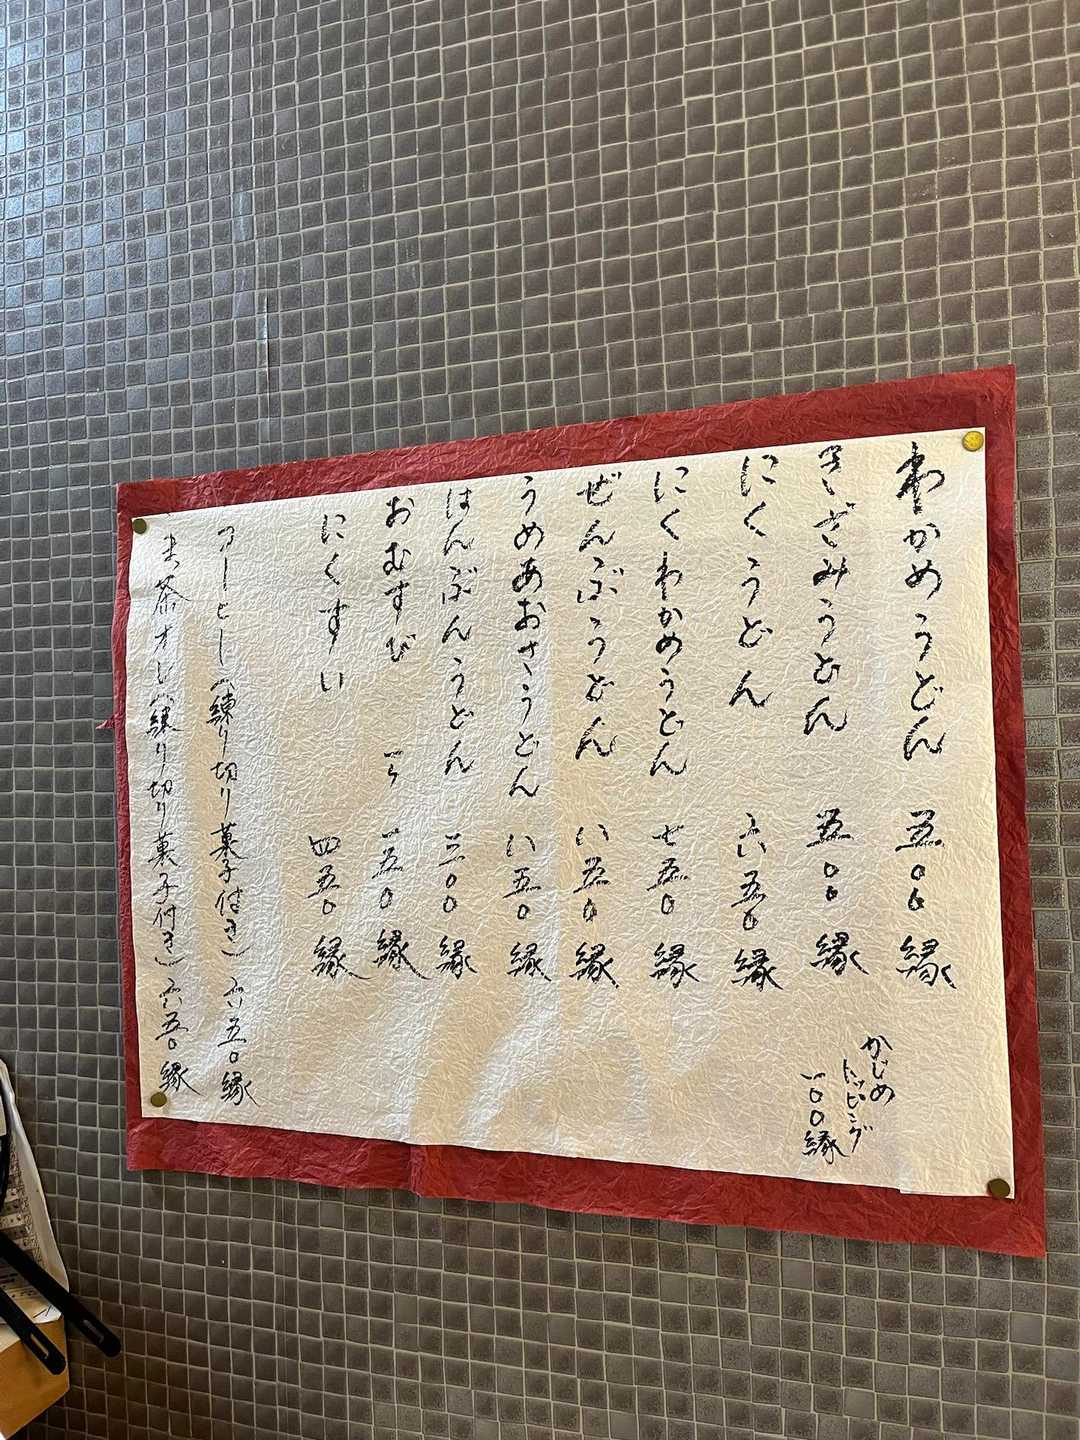 わかめうどん 五〇〇縁
きざみうどん 五〇〇縁
にくうどん 六五〇縁
にくわかめうどん 七五〇縁
ぜんぶうどん 八五〇縁
うめあおさうどん 八五〇縁
はんぶんうどん 三〇〇縁
おむすび 一ヶ 一五〇縁
にくすい 四五〇縁
(練り切り菓子付き) 六五〇縁
(練り切り菓子付き) 六五〇縁
かじめ
トッピング
一〇〇縁